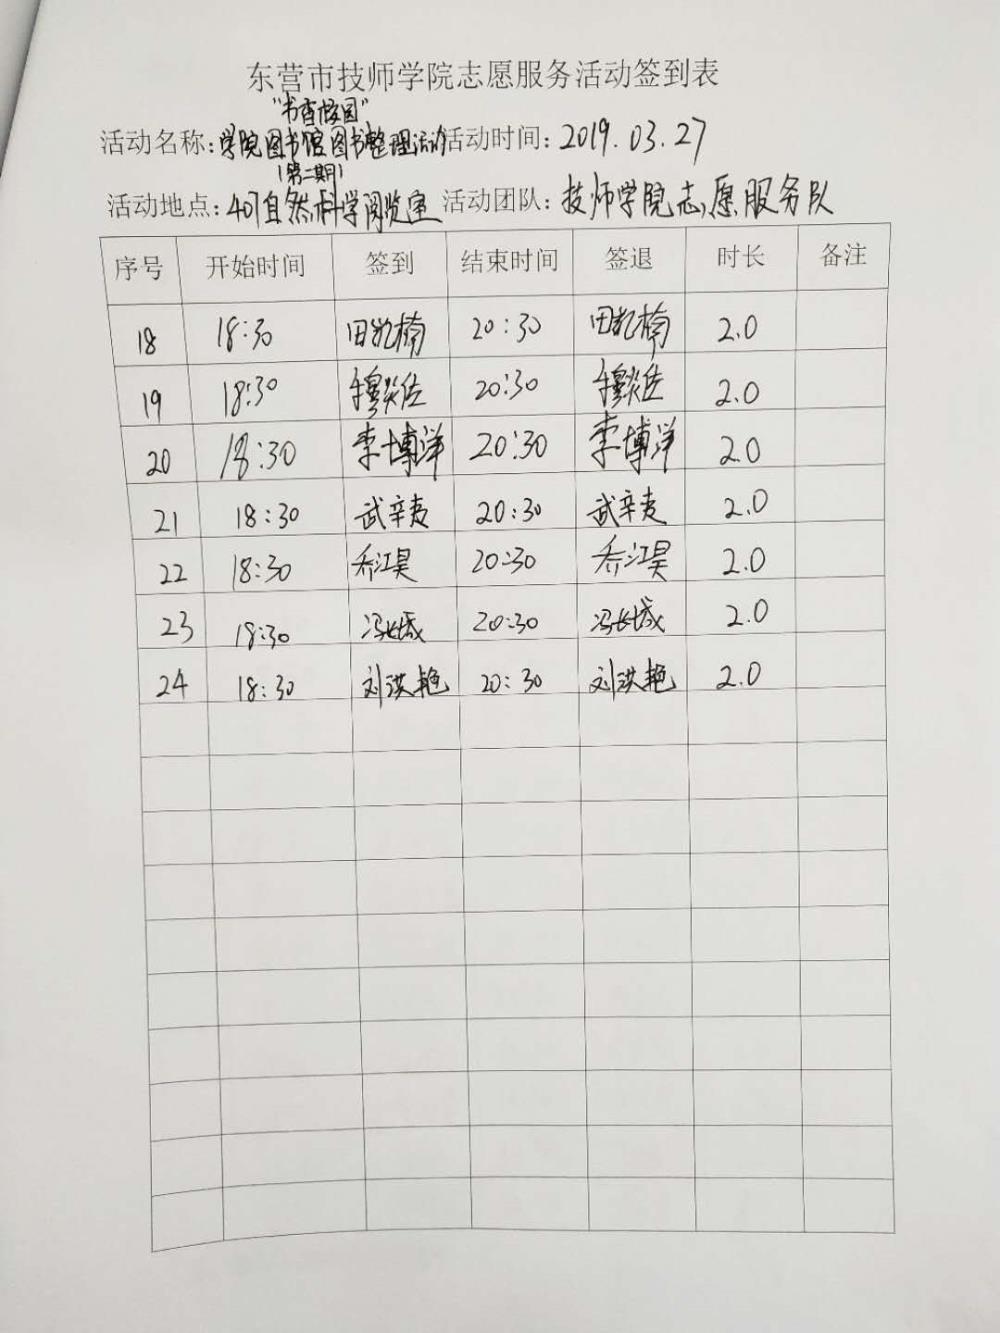 东营市技师学院志愿服务活动签到表
"书香校园"
活动名称：学院图书馆图书整理活动 活动时间：2019.03.27
（第二期）
活动地点：407自然科学阅览室 活动团队：技师学院志愿服务队
序号 开始时间 签到 结束时间 签退 时长 备注
18 18:30 田凯楠 20:30 田凯楠 2.0
19 18:30 穆 20:30 穆 2.0
20 18:30 李博洋 20:30 李博洋 2.0
21 18:30 武辛 20:30 武辛 2.0
22 18:30 乔江昊 20:30 乔江昊 2.0
23 18:30 冯长城 20:30 冯长城 2.0
24 18:30 刘洪艳 20:30 刘洪艳 2.0